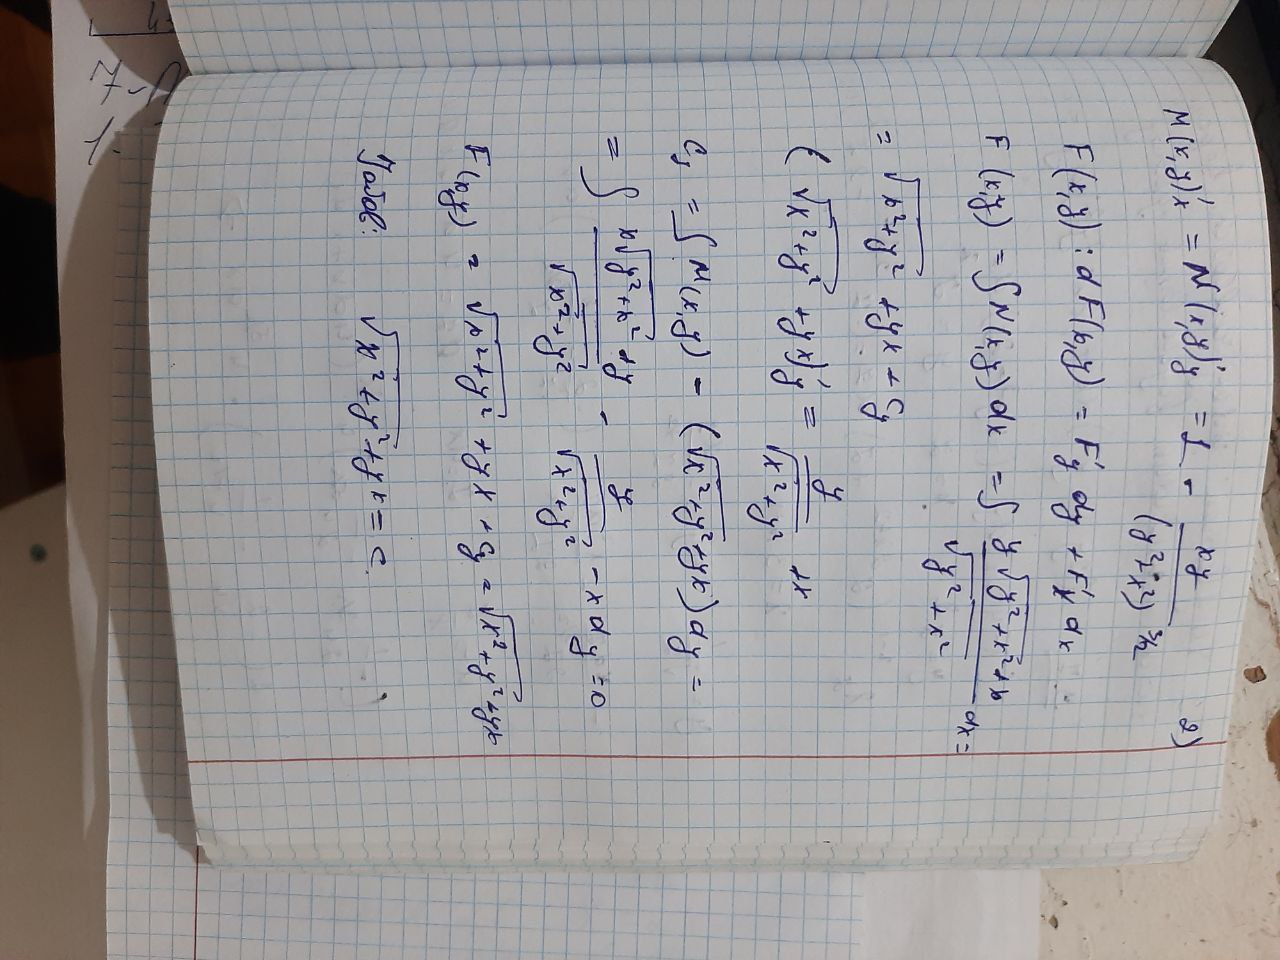 2)
M(x,y)'x = N(x,y)'y = 1 - xy/(y²+x²)^3/2
F(x,y) : dF(x,y) = F'y dy + F'x dx
F(x,y) = ∫N(x,y) dx = ∫ (y√(y²+x²) + x)/√(y²+x²) dx =
= √(x²+y²) + yx + Cy
(√(x²+y²) + yx)'y = y/√(x²+y²) + x
Cy = ∫ M(x,y) - (√(x²+y²) + yx) dy =
= ∫ (x√(y²+x²) + y)/√(x²+y²) - y/√(x²+y²) - x dy = 0
F(x,y) = √(x²+y²) + yx + Cy = √(x²+y²) + yx
Жавоб: √(x²+y²) + yx = C.